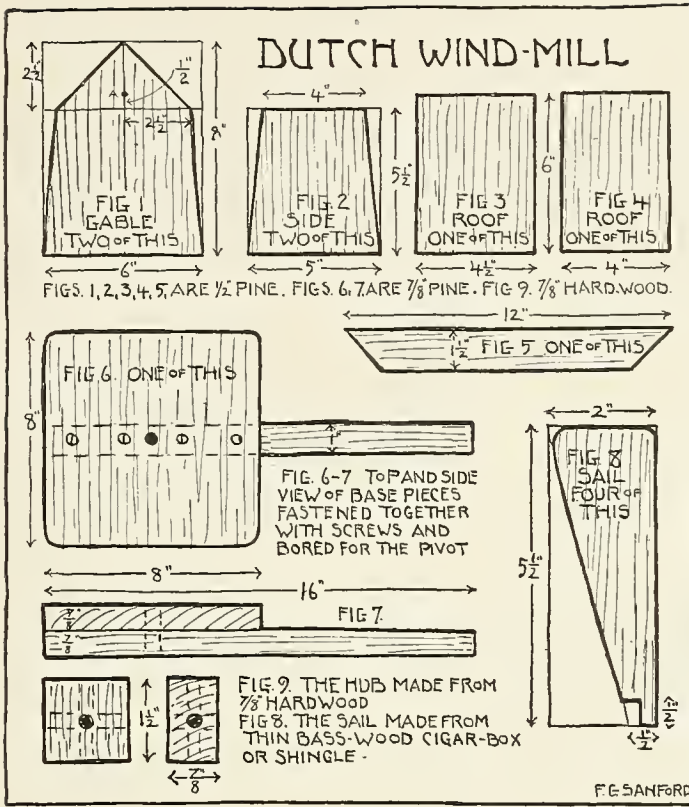 DUTCH WIND-MILL
2½"
½"
2½"
8"
FIG 1
GABLE
TWO OF THIS
6"
4"
5½"
FIG. 2
SIDE
TWO OF THIS
5"
FIG 3
ROOF
ONE OF THIS
4½"
6"
FIG 4
ROOF
ONE OF THIS
4"
FIGS. 1, 2, 3, 4, 5, ARE ½" PINE. FIGS. 6, 7. ARE ⅞" PINE. FIG 9. ⅞" HARD.WOOD.
12"
1½" FIG 5 ONE OF THIS
8"
FIG. 6. ONE OF THIS
1"
FIG. 6-7 TOP AND SIDE
VIEW OF BASE PIECES
FASTENED TOGETHER
WITH SCREWS AND
BORED FOR THE PIVOT
8"
16"
⅞"
⅞"
FIG 7.
2"
5½"
FIG 8
SAIL
FOUR OF
THIS
½"
½"
1½"
⅞"
FIG. 9. THE HUB MADE FROM
⅞" HARDWOOD
FIG 8. THE SAIL MADE FROM
THIN BASS-WOOD CIGAR-BOX
OR SHINGLE.
F.G SANFORD